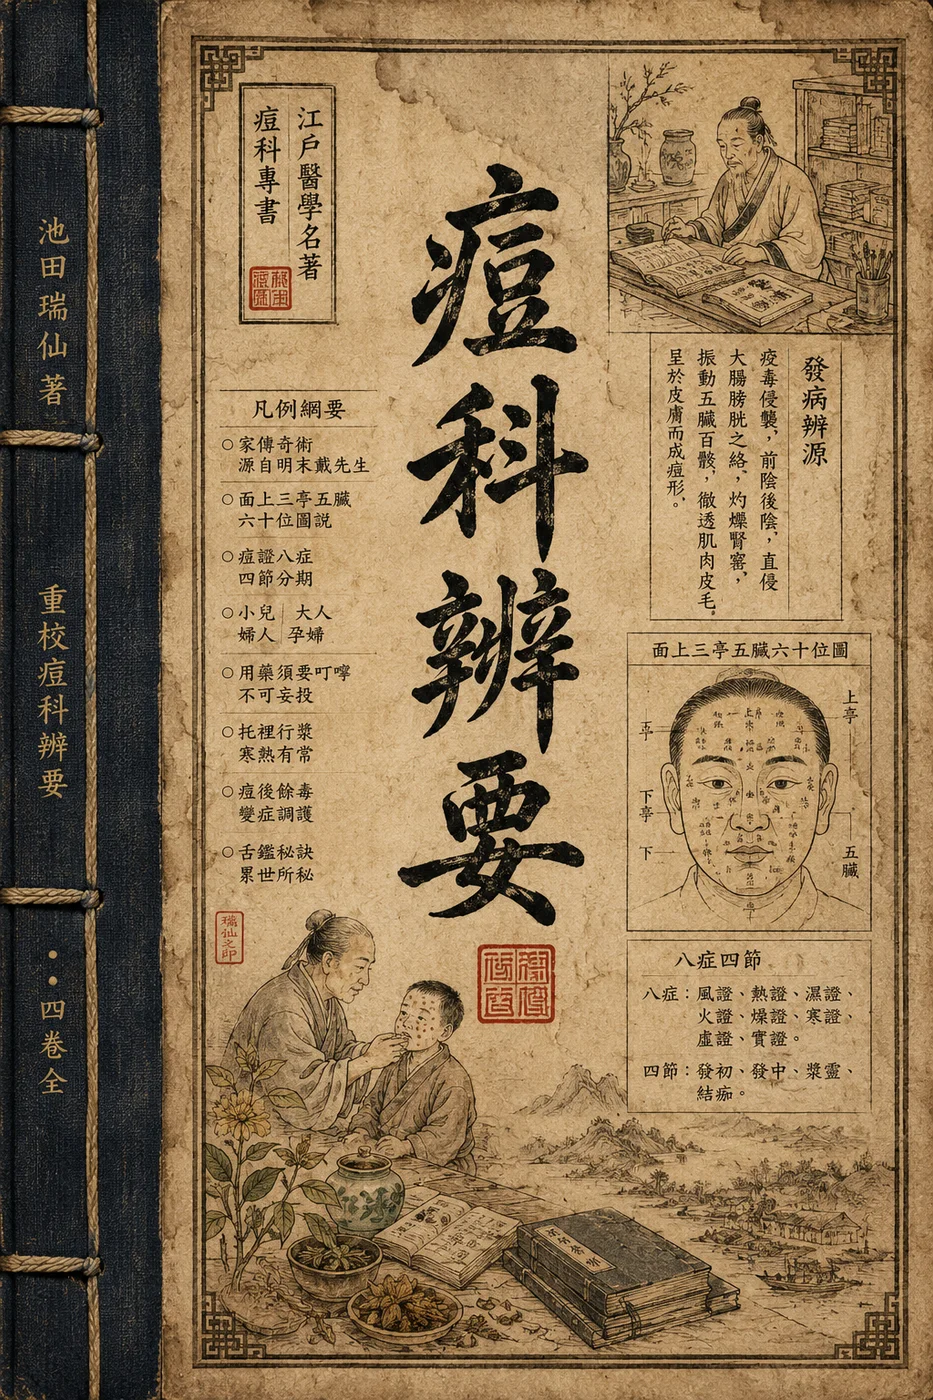 池田瑞仙著
重校痘科辨要
・・四卷全
江戶醫學名著
痘科專書
痘科辨要
凡例綱要
○家傳奇術
源自明末戴先生
○面上三亭五臟
六十位圖説
○痘證八症
四節分期
○小兒 大人
婦人 孕婦
○用藥須要叮嚀
不可妄投
○托裡行漿
寒熱有常
○痘後餘毒
變症調護
○舌鑑秘訣
累世所秘
瑞仙之印
發病辨源
疫毒侵襲，前陰後陰，直侵
大腸膀胱之絡，灼爍腎窬，
振動五臟百骸，徹透肌肉皮毛。
呈於皮膚而成痘形。
面上三亭五臟六十位圖
上亭
下亭
下
五臟
八症四節
八症：風證、熱證、濕證、
火證、燥證、寒證、
虛證、實證。
四節：發初、發中、漿靈、
結痂。